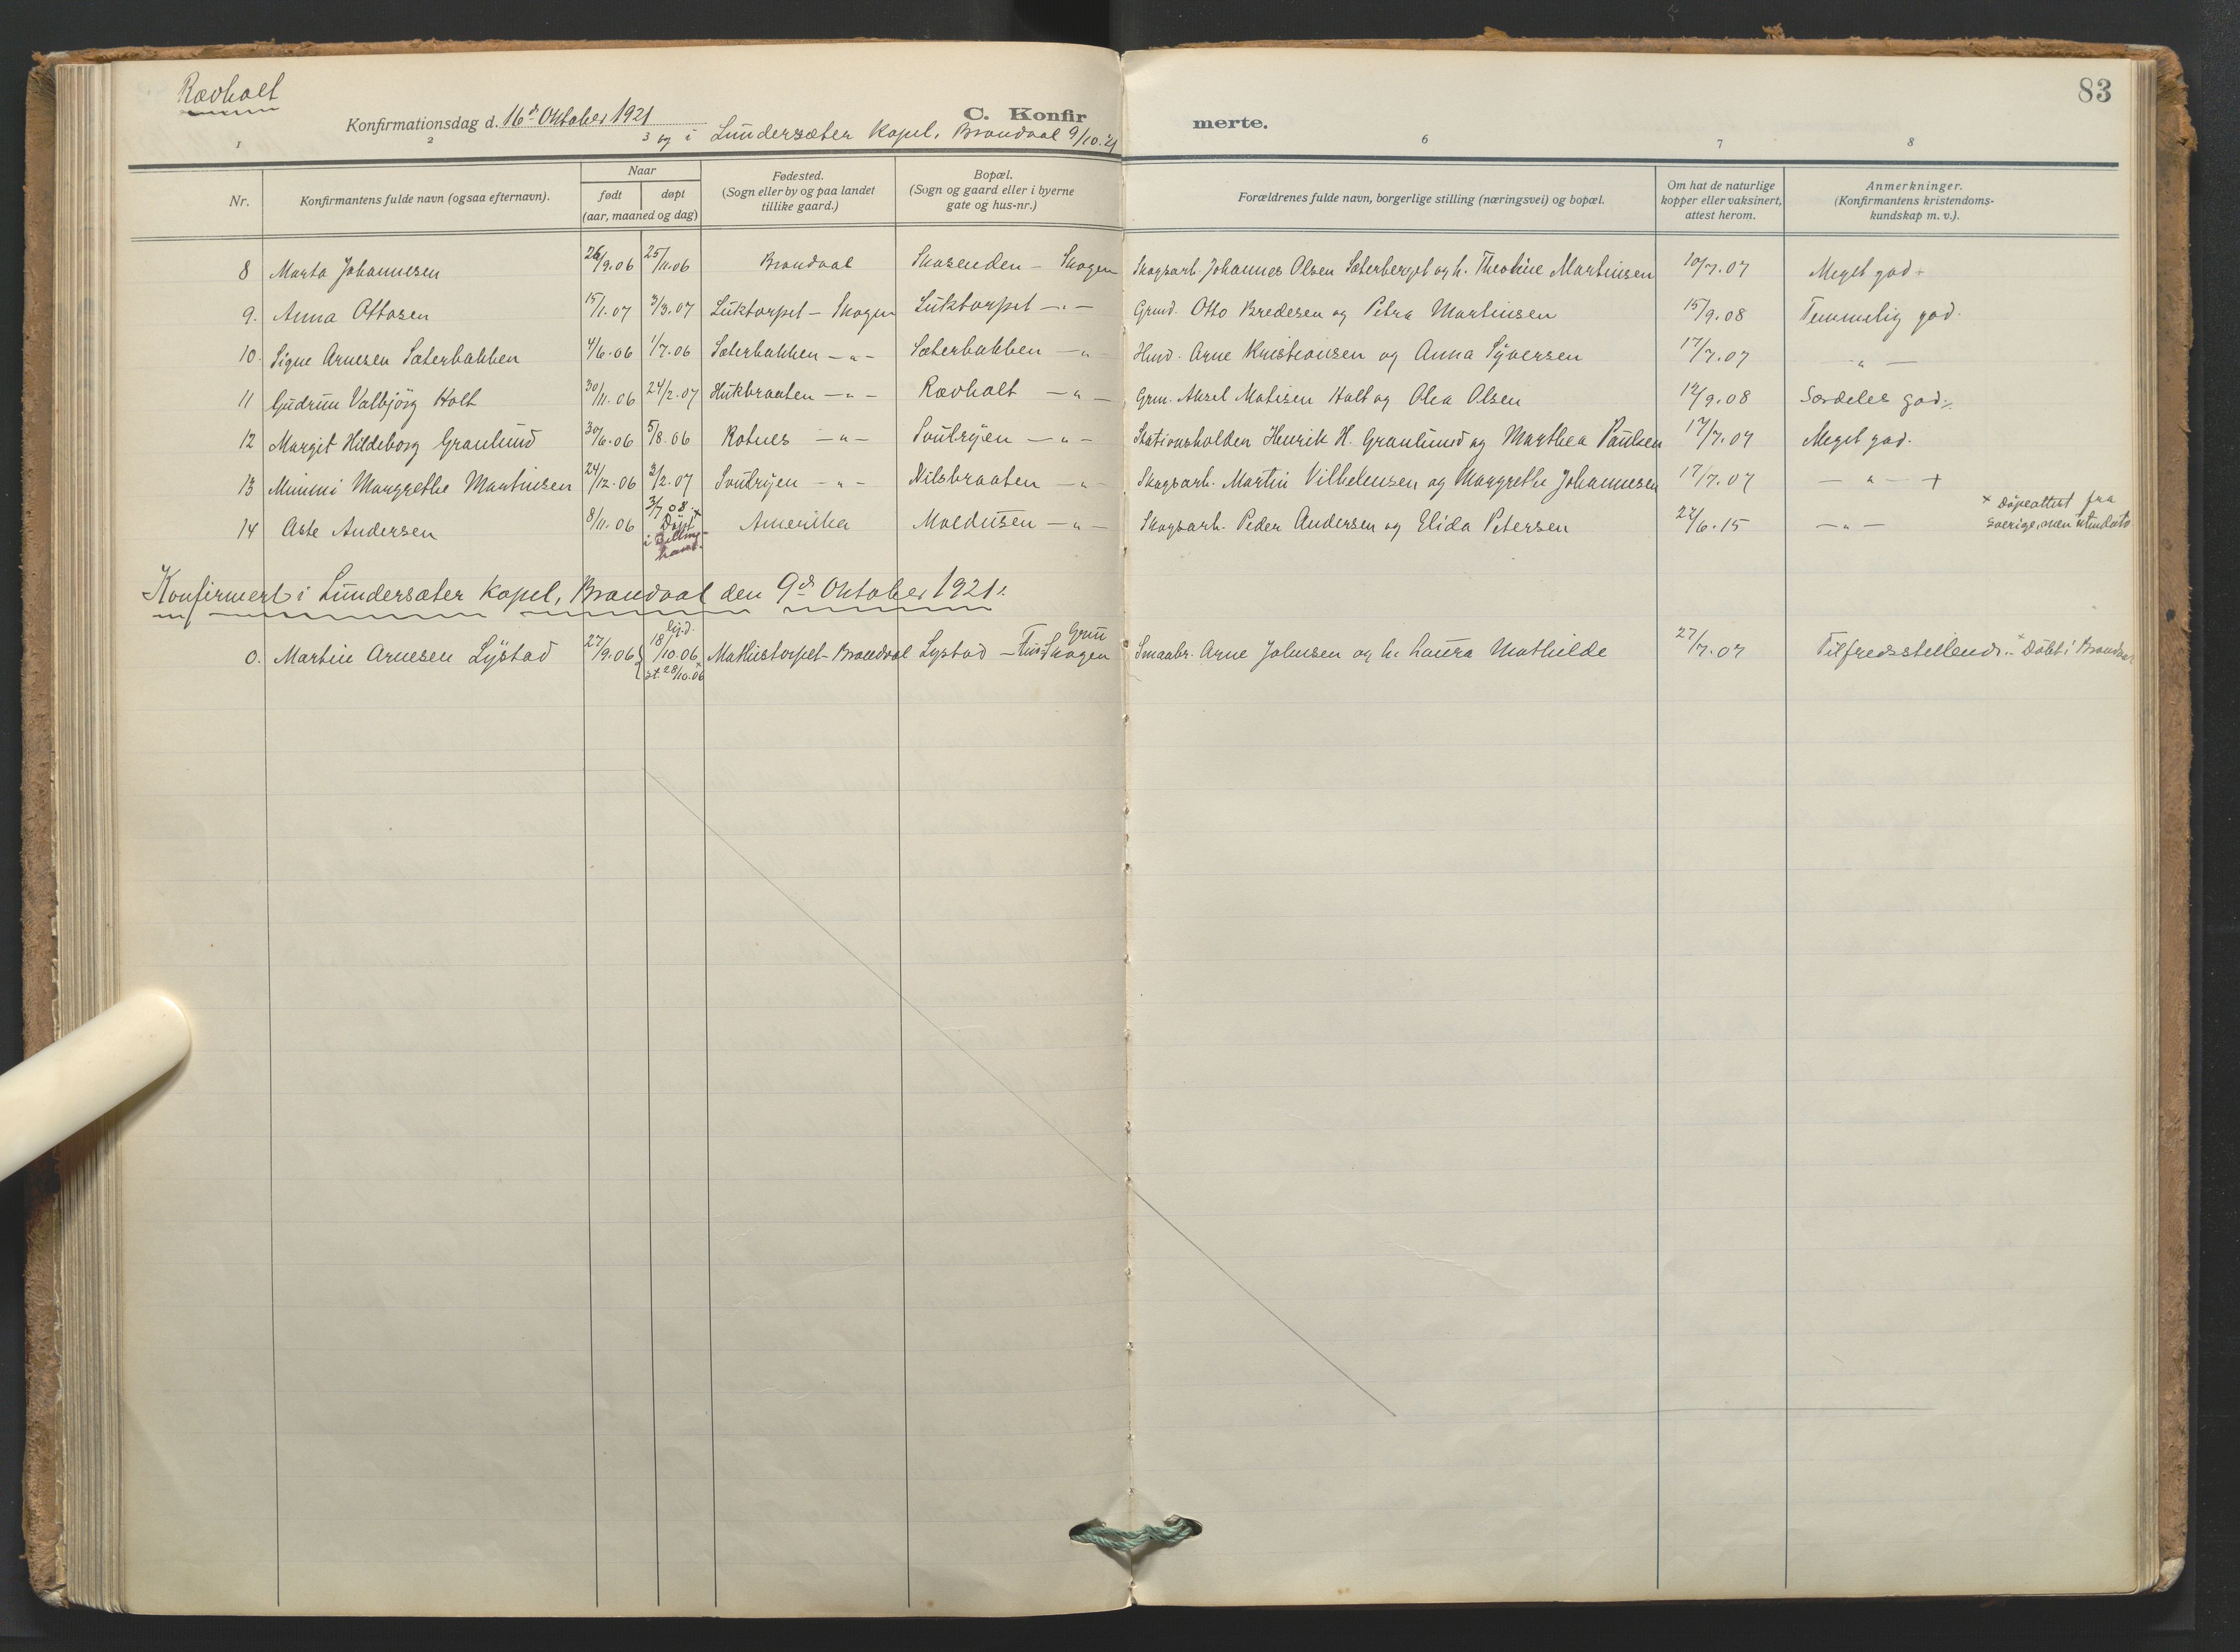 Rævholt
83
Konfirmationsdag d. 16d Oktober 1921 C. Konfirmerte.
og i Lundersæter Kapel, Brandval 9/10.21
1 2 3 6 7 8
Nr. Konfirmantens fulde navn (ogsaa efternavn). Naar født døpt (aar, maaned og dag) Fødested. (Sogn eller by og paa landet tillike gaard.) Bopæl. (Sogn og gaard eller i byerne gate og hus-nr.) Forældrenes fulde navn, borgerlige stilling (næringsvei) og bopæl. Om hat de naturlige kopper eller vaksinert, attest herom. Anmerkninger. (Konfirmantens kristendomskundskap m. v.).
8 Marta Johannesen 26/9.06 25/11.06 Brandval Skasenden – Skogen Skogsarb. Johannes Olsen Sæterberget og h. Theoline Martinsen 10/7.07 Meget god.
9. Anna Ottosen 15/1.07 3/3.07 Luktorpet – Skogen Luktorpet – " – Grmd. Otto Bredesen og Petra Martinsen 15/9.08 Temmelig god.
10. Signe Arnesen Sæterbakken 4/6.06 1/7.06 Sæterbakken – " – Sæterbakken – " – Hmd. Arne Kristiansen og Anna Syversen 17/7.07 – " –
11 Gudrun Valbjörg Holt 30/11.06 24/2.07 Hukbraaten – " – Rævholt – " – Grm. Aksel Matisen Holt og Olea Olsen 12/9.08 Særdeles god
12 Margit Hildeborg Granlund 30/6.06 5/8.06 Rotnes – " – Svulryen – " – Stationsholder Henrik H. Granlund og Marthea Paulsen 17/7.07 Meget god.
13 Mimmi Margrethe Martinsen 24/12.06 3/2.07 Svulryen – " – Nilsbraaten – " – Skogsarb. Martin Vilhelmsen og Margrethe Johannesen 17/7.07 – " – +
14 Aste Andersen 8/11.06 3/7 08 x Döpt i Amerika Moldusen – " – Skogsarb. Peder Andersen og Elida Petersen 22/6.15 – " – x Döpeattest fra Sverige, men utendato
Konfirmert i Lundersæter Kapel, Brandval den 9de Oktober 1921:
0. Martin Arnesen Lystad 27/9.06 hj.d. 18/10.06 st. 28/10.06 x Mathistorpet – Brandval Lystad – Skogen Grue Smaabr. Arne Johnsen og h. Laura Mathilde 27/7.07 Tilfredsstillende. x Döbt i Brandval